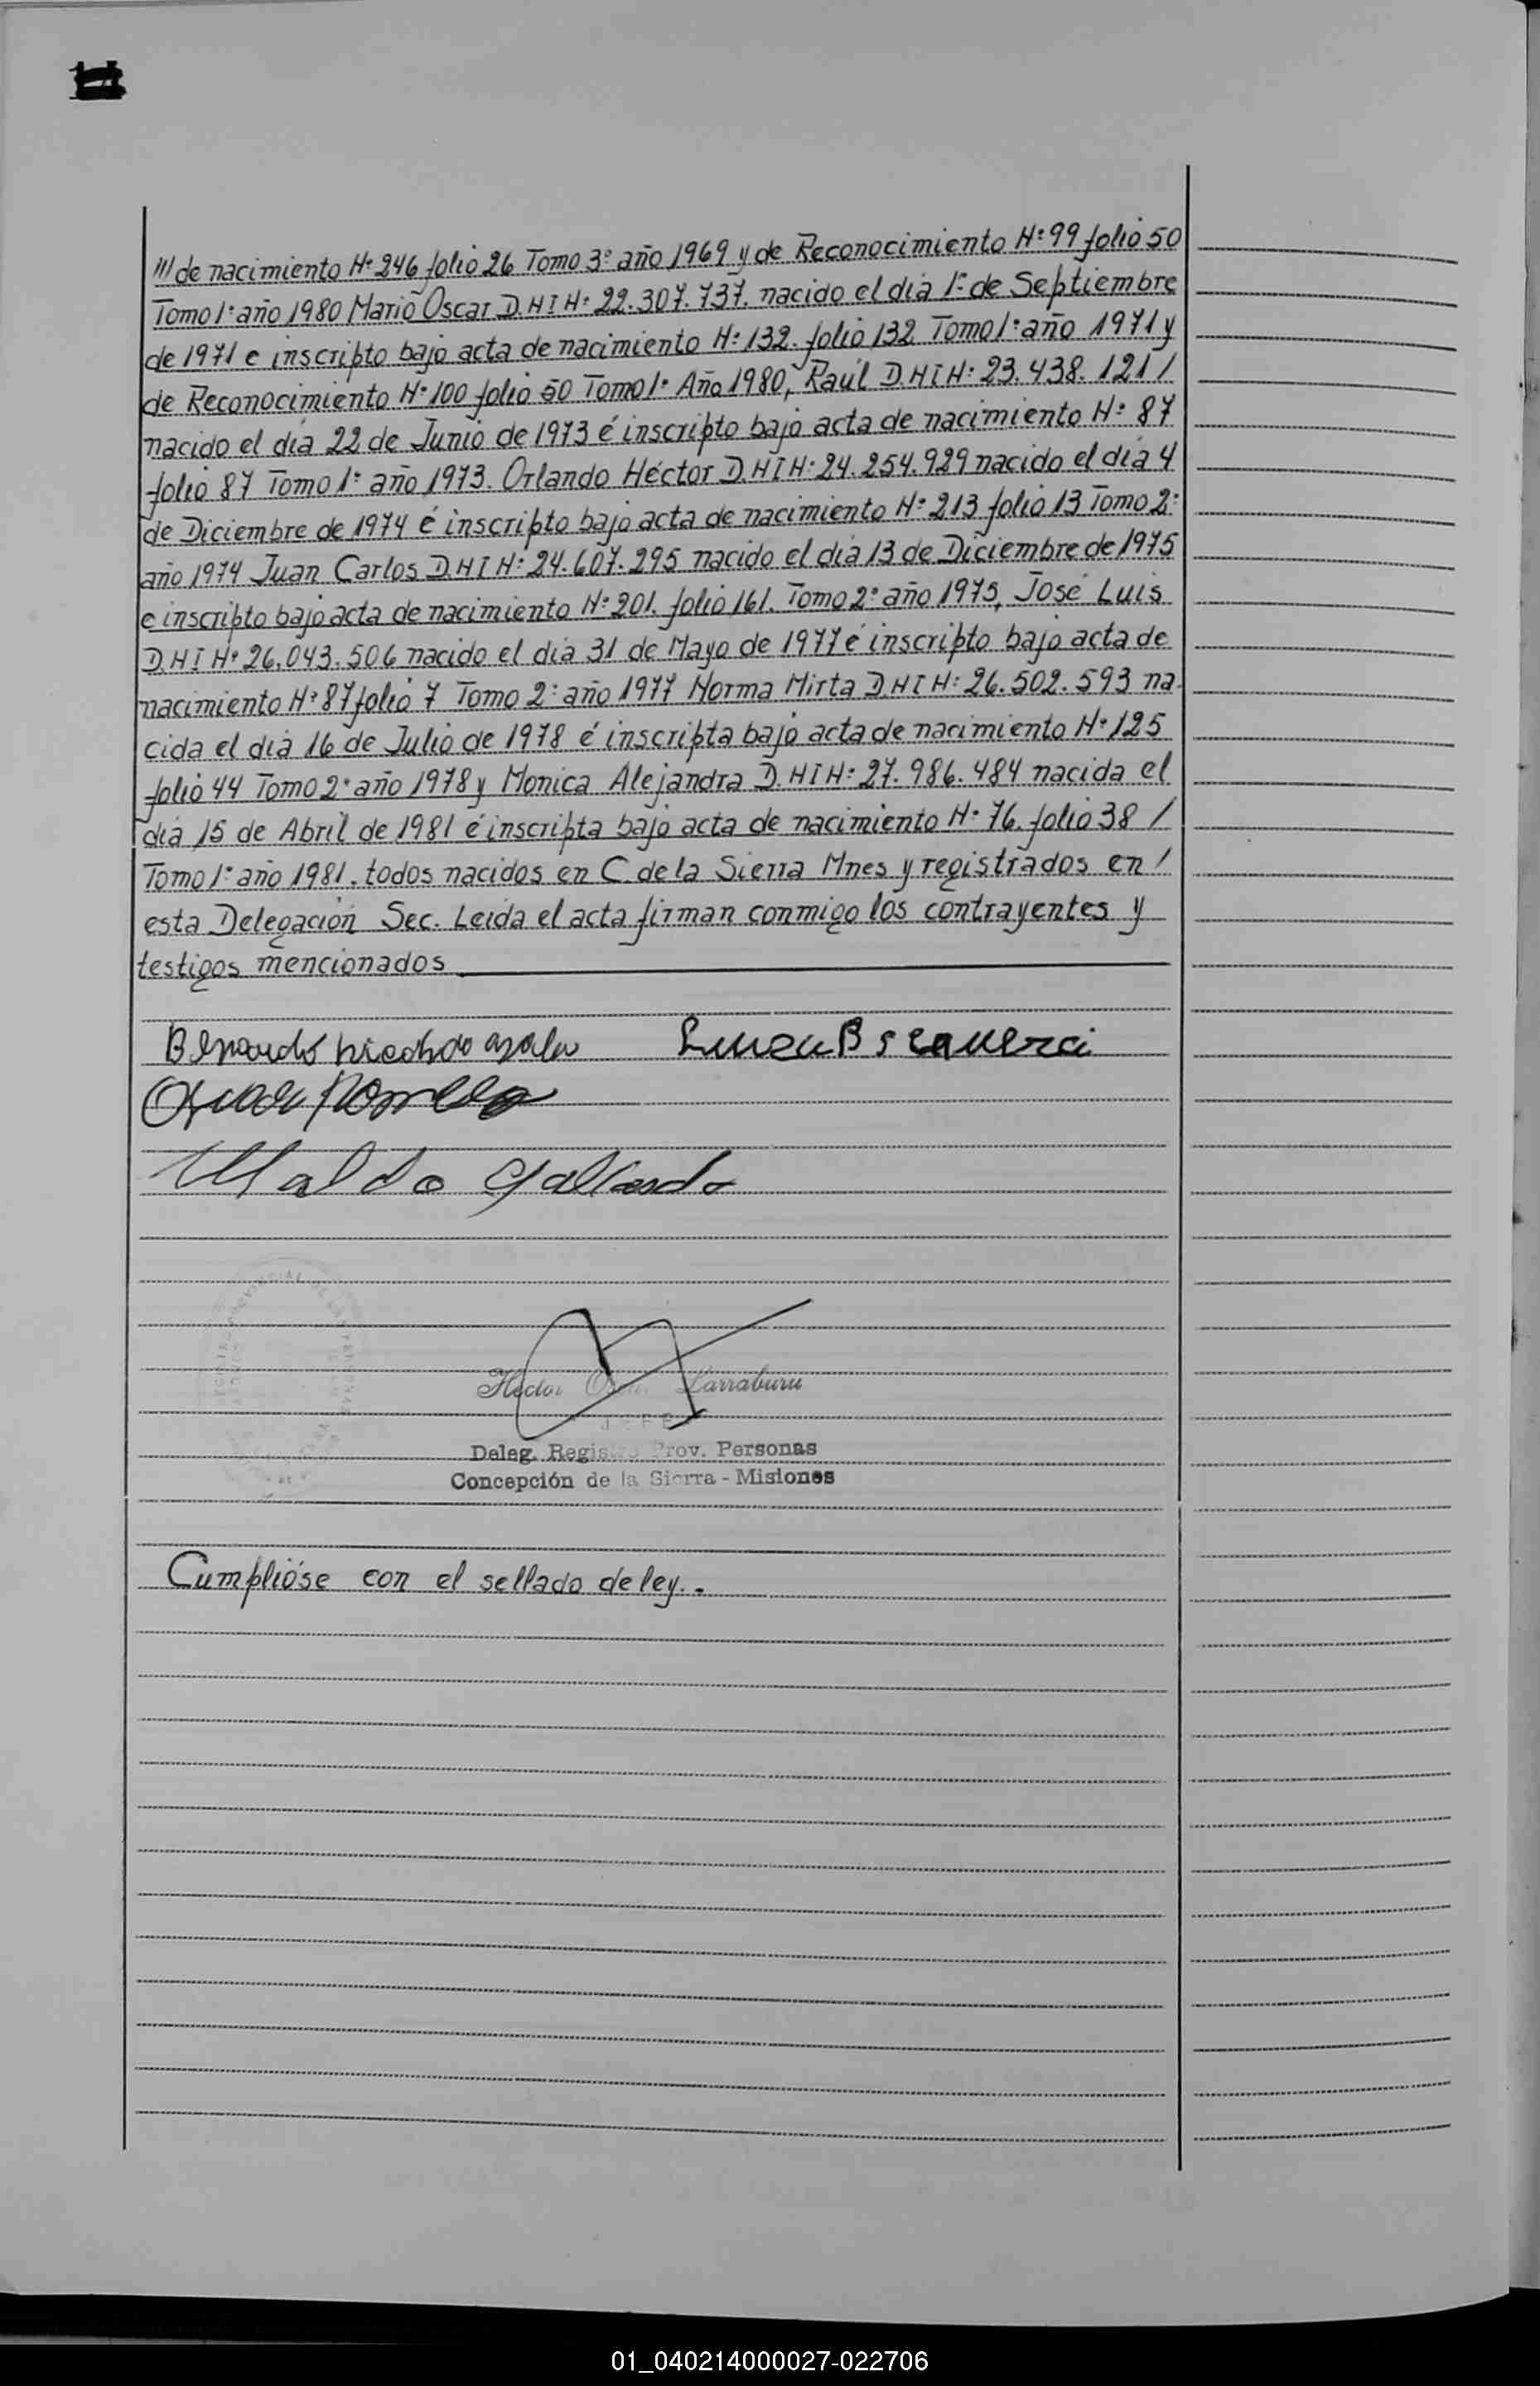 /// de nacimiento Nº 246 folio 26 Tomo 3º año 1969 y de Reconocimiento Nº 99 folio 50
Tomo 1º año 1980 Mario Oscar D.N.I Nº 22.307.737. nacido el día 1º de Septiembre
de 1971 e inscripto bajo acta de nacimiento Nº 132. folio 132 Tomo 1º año 1971 y
de Reconocimiento Nº 100 folio 50 Tomo 1º Año 1980, Raúl D.N.I Nº 23.438.121 /
nacido el día 22 de Junio de 1973 é inscripto bajo acta de nacimiento Nº 87
folio 87 Tomo 1º año 1973. Orlando Héctor D.N.I Nº 24.254.929 nacido el día 4
de Diciembre de 1974 é inscripto bajo acta de nacimiento Nº 213 folio 13 Tomo 2º
año 1974 Juan Carlos D.N.I Nº 24.607.295 nacido el día 13 de Diciembre de 1975
e inscripto bajo acta de nacimiento Nº 201. folio 161. Tomo 2º año 1975, José Luis
D.N.I Nº 26.043.506 nacido el día 31 de Mayo de 1977 é inscripto bajo acta de
nacimiento Nº 87 folio 7 Tomo 2º año 1977 Norma Mirta D.N.I Nº 26.502.593 na-
cida el día 16 de Julio de 1978 é inscripta bajo acta de nacimiento Nº 125
folio 44 Tomo 2º año 1978 y Monica Alejandra D.N.I Nº 27.986.484 nacida el
día 15 de Abril de 1981 é inscripta bajo acta de nacimiento Nº 76. folio 38 /
Tomo 1º año 1981. todos nacidos en C. de la Sierra Mnes y registrados en /
esta Delegación Sec. Leída el acta firman conmigo los contrayentes y
testigos mencionados
Gallardo
Hector Larraburu
JEFE
Deleg. Registro Prov. Personas
Concepción de la Sierra - Misiones
Cumplióse con el sellado de ley..
01_040214000027-022706